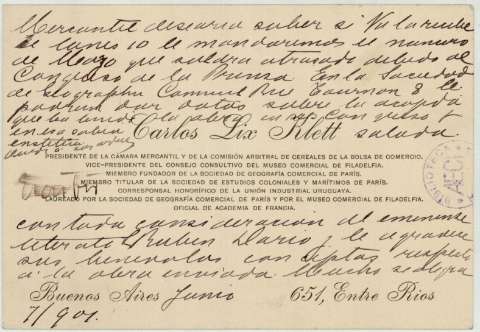 Mercantil desearia saber si Va la recibe
el lunes 10 le mandaremos el numero
de Mayo que saldra atrasado debido al
Congreso de la Prensa En la Sociedad
de Geographia Commer Rue Tournon 8 le
podran dar datos sobre la acojida
que ha tenido la obra en ese congreso y
en esa sabia
Carlos Lix Klett saluda
PRESIDENTE DE LA CÁMARA MERCANTIL Y DE LA COMISIÓN ARBITRAL DE CEREALES DE LA BOLSA DE COMERCIO.
VICE-PRESIDENTE DEL CONSEJO CONSULTIVO DEL MUSEO COMERCIAL DE FILADELFIA.
MIEMBRO FUNDADOR DE LA SOCIEDAD DE GEOGRAFÍA COMERCIAL DE PARÍS.
MIEMBRO TITULAR DE LA SOCIEDAD DE ESTUDIOS COLONIALES Y MARÍTIMOS DE PARÍS.
CORRESPONSAL HONORÍFICO DE LA UNIÓN INDUSTRIAL URUGUAYA.
LAUREADO POR LA SOCIEDAD DE GEOGRAFÍA COMERCIAL DE PARÍS Y POR EL MUSEO COMERCIAL DE FILADELFIA.
OFICIAL DE ACADEMIA DE FRANCIA.
BIBLIOTECA
AECI
con toda consideracion al eminense
literato Ruben Dario, le agradece
sus benevolos conceptos respecto
á la obra enviada. Mucho se alegra
Buenos Aires Junio
651, Entre Rios
7/901.